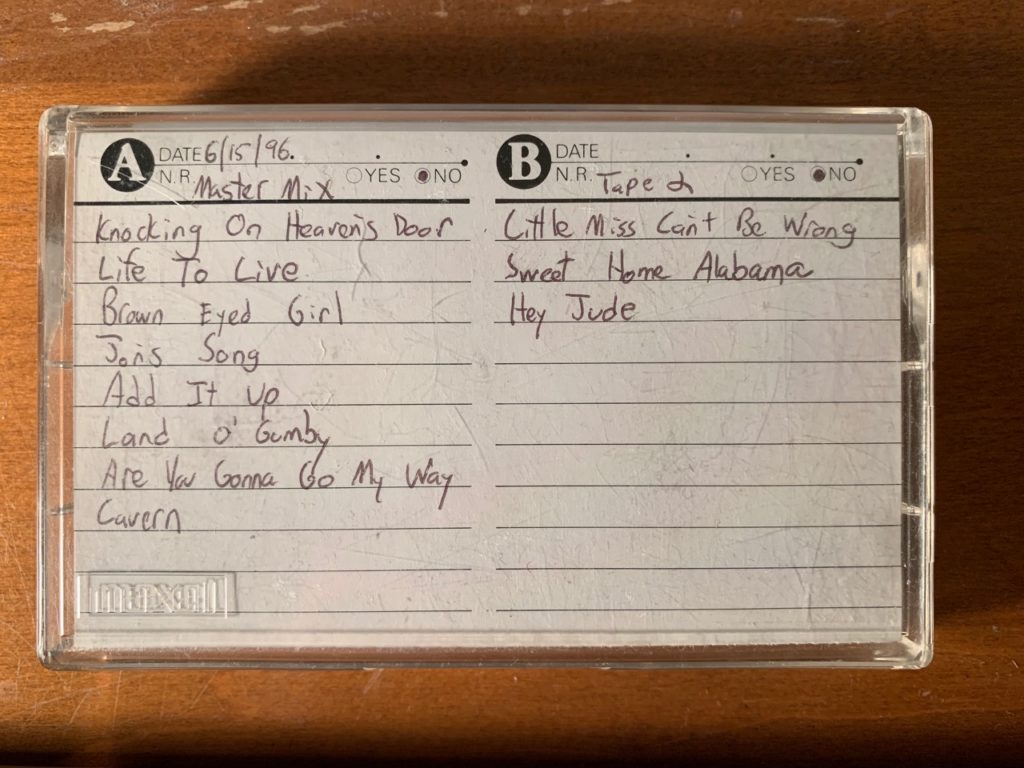 A DATE 6/15/96.
N.R. Master Mix YES NO
Knocking On Heaven's Door
Life To Live
Brown Eyed Girl
Jon's Song
Add It Up
Land O' Gumby
Are You Gonna Go My Way
Cavern
maxell
B DATE
N.R. Tape 2 YES NO
Little Miss Can't Be Wrong
Sweet Home Alabama
Hey Jude